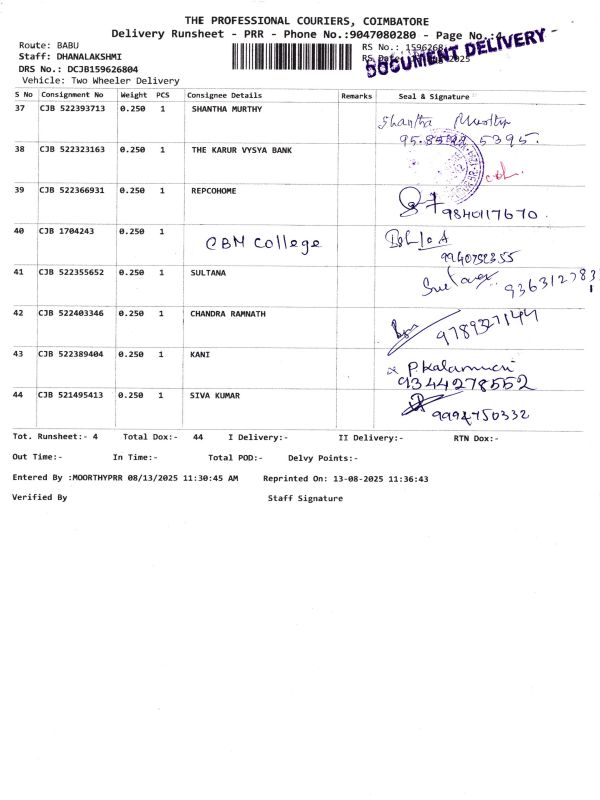 THE PROFESSIONAL COURIERS, COIMBATORE
Delivery Runsheet - PRR - Phone No.:9047080280 - Page No.:4
Route: BABU
RS No.: 1596268
Staff: DHANALAKSHMI
DOCUMENT DELIVERY
DRS No.: DCJB159626804
Vehicle: Two Wheeler Delivery
S No Consignment No Weight PCS Consignee Details Remarks Seal & Signature
37 CJB 522393713 0.250 1 SHANTHA MURTHY Shantha Murthy
5395.
38 CJB 522323163 0.250 1 THE KARUR VYSYA BANK
39 CJB 522366931 0.250 1 REPCOHOME
9840117670.
40 CJB 1704243 0.250 1 CBM College
9940792355
41 CJB 522355652 0.250 1 SULTANA Sultana 936312783
42 CJB 522403346 0.250 1 CHANDRA RAMNATH
9789327144
43 CJB 522389404 0.250 1 KANI
9344278552
44 CJB 521495413 0.250 1 SIVA KUMAR
9994750332
Tot. Runsheet:- 4 Total Dox:- 44 I Delivery:- II Delivery:- RTN Dox:-
Out Time:- In Time:- Total POD:- Delvy Points:-
Entered By :MOORTHYPRR 08/13/2025 11:30:45 AM Reprinted On: 13-08-2025 11:36:43
Verified By Staff Signature